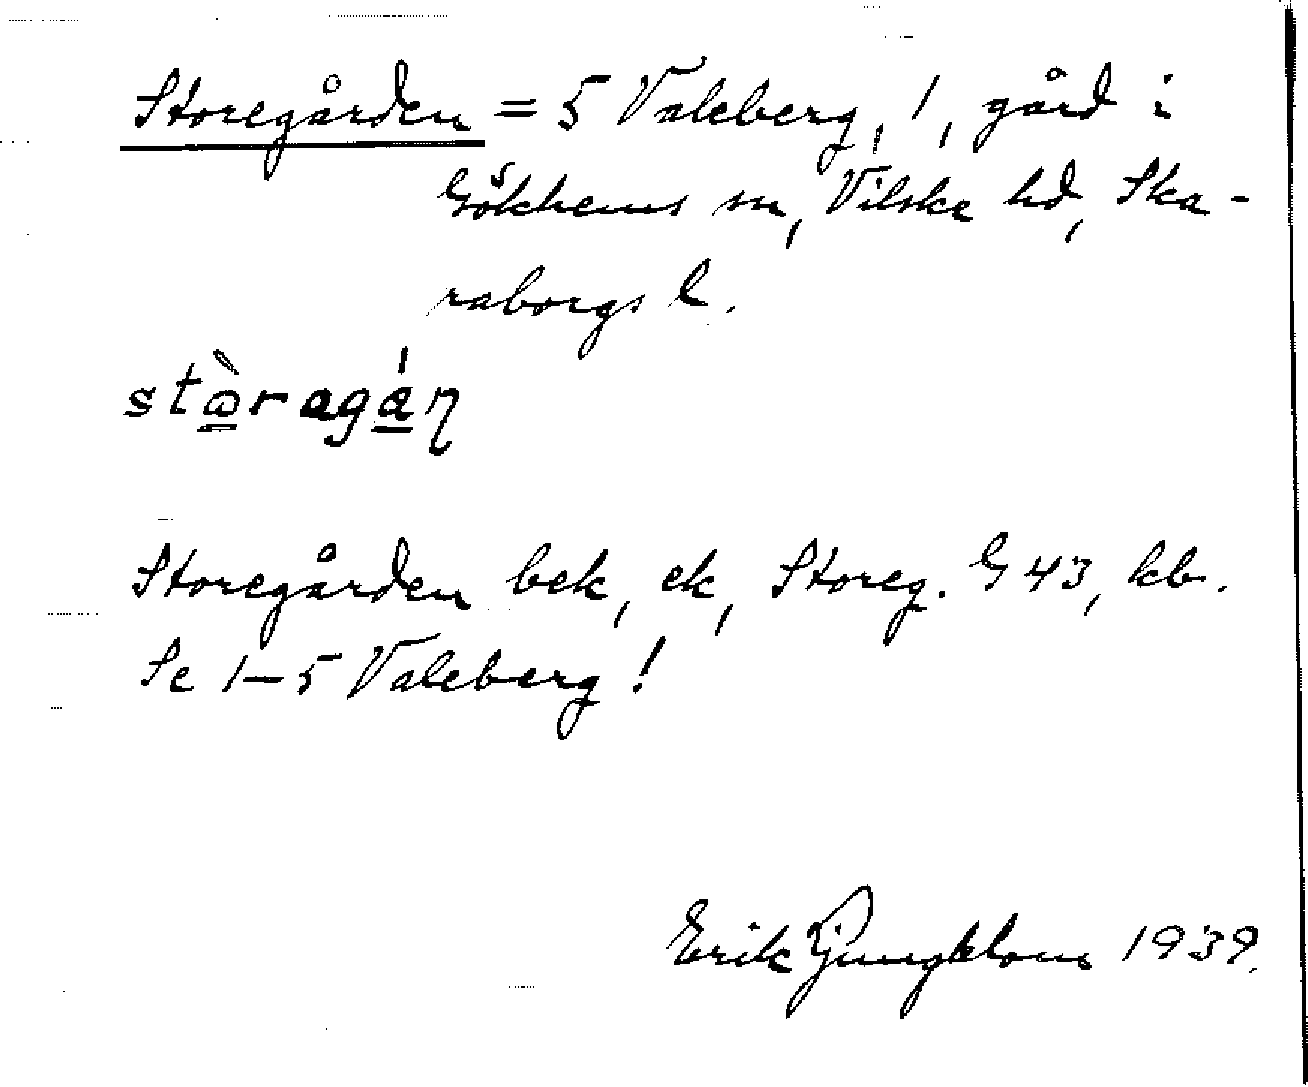 Storegården = 5 Valeberg, 1, gård i
Gökhems sn, Vilske hd, Ska-
raborgs l.
stòragán
Storegården bek, ek, Storeg. G 43, kb.
Se 1-5 Valeberg!
Erik Ljungblom 1939.